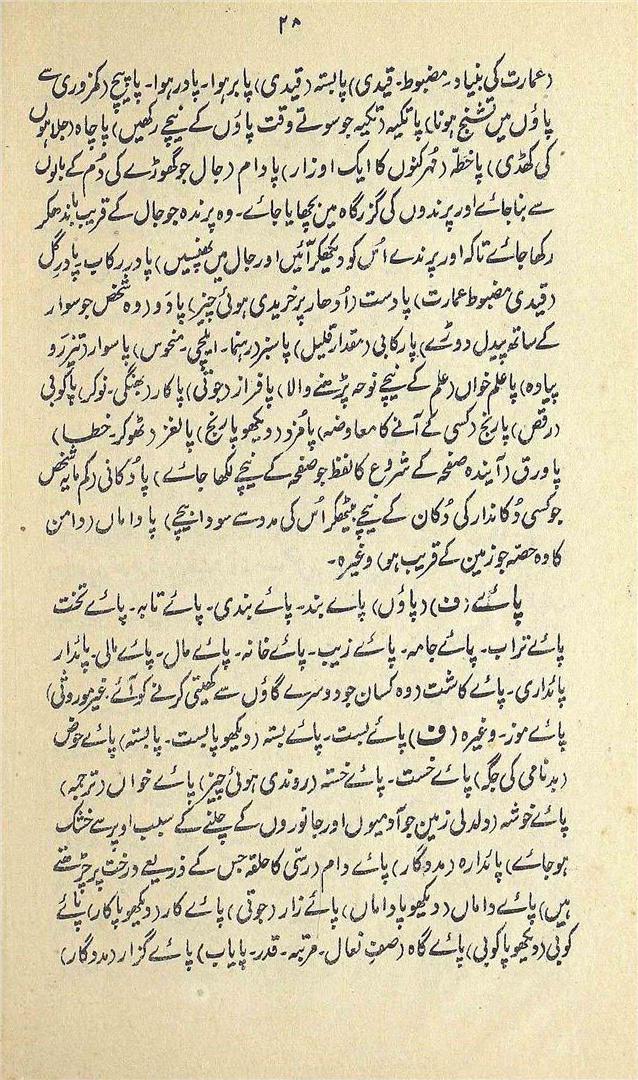 ۲۸
(عمارت کی بنیاد۔ مضبوط۔ قیدی) پابستہ (قیدی) پابر ہوا۔ پادر ہوا۔ پاپیچ (کمزوری سے
پاؤں میں تشنج ہونا) پاتکیہ (تکیہ جو سوتے وقت پاؤں کے نیچے رکھیں) پاچاہ (جلاہوں
کی کھڈی) پاخطّہ (مُہر کنوں کا ایک اوزار) پادام (جال جو گھوڑے کی دُم کے بالوں
سے بنا جائے اور پرندوں کی گزرگاہ میں بچھایا جائے۔ وہ پرندہ جو جال کے قریب باندھکر
رکھا جائے تاکہ اور پرندے اُس کو دیکھکر آئیں اور جال میں پھنسیں) پادر رکاب۔ پادر گِل
(قیدی مضبوط عمارت) پادست (اُدھار پر خریدی ہوئی چیز) پادَو (وہ شخص جو سوار
کے ساتھ پیدل دوڑے) پارکابی (مقدار قلیل) پاسبز (رہنما۔ ایلچی۔ منحوس) پاسوار (تیز رَو
پیادہ) پاعلم خواں (علم کے نیچے نوحہ پڑھنے والا) پافراز (جوتی) پاکار (بھنگی۔ نوکر) پاکوبی
(رقص) پارنج (کسی کے آنے کا معاوضہ) پامُزد (دیکھو پارنج) پالغز (ٹھوکر۔ خطا)
پاورق (آیندہ صفحہ کے شروع کا لفظ جو صفحہ کے نیچے لکھا جائے) پادُکانی (کم مایہ شخص
جو کسی دُکاندار کی دُکان کے نیچے بیٹھکر اُس کی مدد سے سودا بیچے) پاداماں (دامن
کا وہ حصّہ جو زمین کے قریب ہو) وغیرہ۔
پائے (ف) (پاؤں) پائے بند۔ پائے بندی۔ پائے تابہ۔ پائے تخت
پائے تراب۔ پائے جامہ۔ پائے زیب۔ پائے خانہ۔ پائے مال۔ پائے مالی۔ پائدار
پائداری۔ پائے کاشت (وہ کسان جو دوسرے گاؤں سے کھیتی کرنے کو آئے۔ غیر موروثی)
پائے موز۔ وغیرہ (ف) پائے بست۔ پائے بستہ (دیکھو پابست۔ پابستہ) پائے حوض
(بدنامی کی جگہ) پائے خست۔ پائے خستہ (روندی ہوئی چیز) پائے خواں (ترجمہ)
پائے خوشہ (دلدلی زمین جو آدمیوں اور جانوروں کے چلنے کے سبب اوپر سے خشک
ہو جائے) پائدارہ (مددگار) پائے دام (رسّی کا حلقہ جس کے ذریعے درخت پر چڑھتے
ہیں) پائے داماں (دیکھو پاداماں) پائے زار (جوتی) پائے کار (دیکھو پاکار) پائے
کوبی (دیکھو پاکوبی) پائے گاہ (صفِ نعال۔ مرتبہ۔ قدر۔ پایاب) پائے گزار (مددگار)